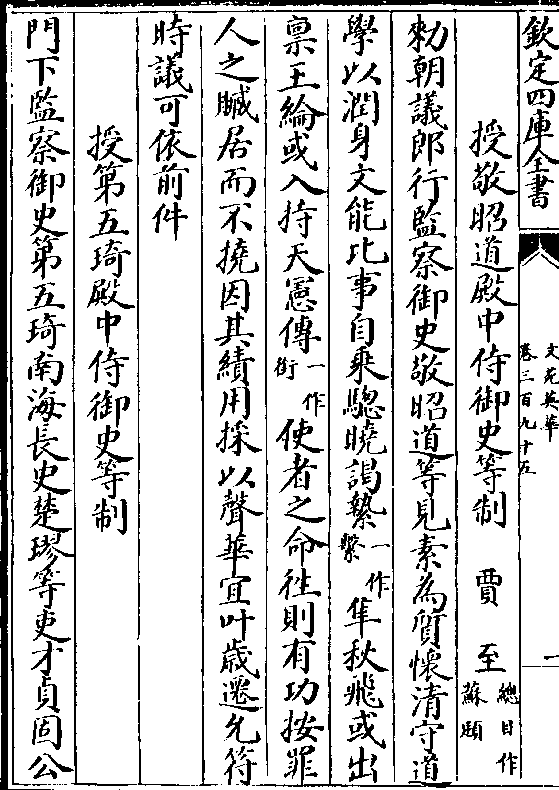 欽定四庫全書
文苑英華
卷三百九十五
一
授敬昭道殿中侍御史等制 賈至 總目作蘇頲
勅朝議郎行監察御史敬昭道等見素為質懷清守道
學以潤身文能比事自乘驄曉謁縶一作繫隼秋飛或出
禀王綸或入持天憲傳一作銜使者之命徃則有功按罪
人之贓居而不撓因其績用採以聲華宜叶歲遷允符
時議可依前件
授第五琦殿中侍御史等制
門下監察御史第五琦南海長史楚璆等吏才貞固公